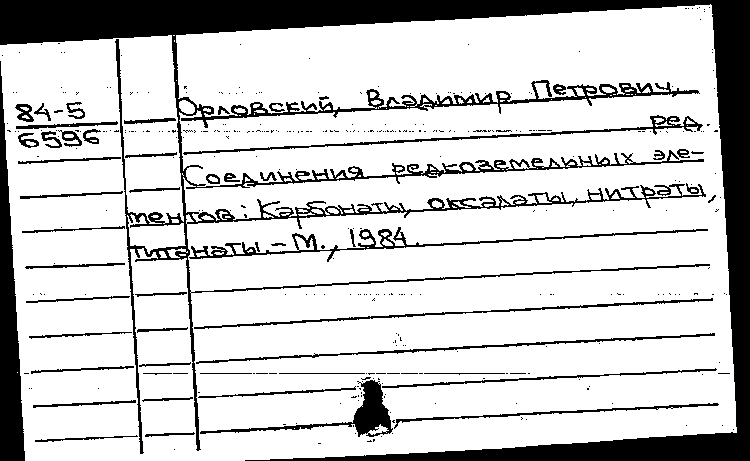 84-5
6596
Орловский, Владимир Петрович,
ред.
Соединения редкоземельных эле-
ментов: Карбонаты, оксалаты, нитраты,
титанаты. - М., 1984.